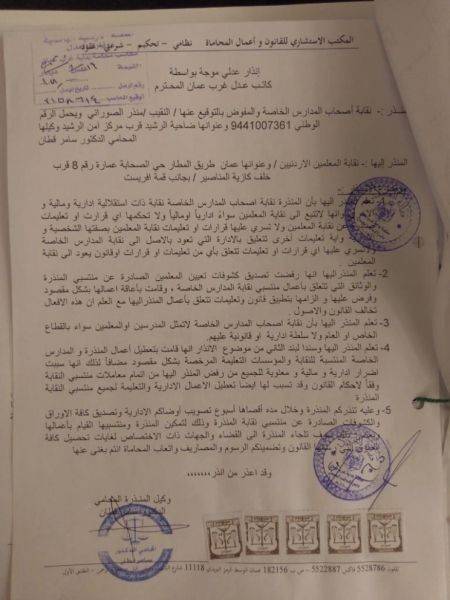 المكتب الاستشاري للقانون و أعمال المحاماة نظامي – تحكيم – شرعي – عقود
إنذار عدلي موجة بواسطة
كاتب عدل غرب عمان المحترم
المنذر :- نقابة أصحاب المدارس الخاصة والمفوض بالتوقيع عنها / النقيب /منذر الصوراني ويحمل الرقم
الوطني 9441007361 وعنوانها ضاحية الرشيد قرب مركز امن الرشيد وكيلها
المحامي الدكتور سامر قطان
المنذر إليها :- نقابة المعلمين الاردنيين / وعنوانها عمان طريق المطار حي الصحابة عمارة رقم 8 قرب
خلف كازية المناصير / بجانب قمة افريست
المنذر إليها بأن المنذرة نقابة اصحاب المدارس الخاصة نقابة ذات استقلالية ادارية ومالية و
وانها لاتتبع الى نقابة المعلمين سواءً ادارياً اومالياً ولا تحكمها اي قرارت او تعليمات
نقابة المعلمين ولا تسري عليها قرارات او تعليمات نقابة المعلمين بصفتها الشخصية و
واية تعليمات أخرى تتعليق بالادارة التي تعود بالاصل الى نقابة المدارس الخاصة
ولاتسري عليها اي قرارات او تعليمات تتعلق بأي من تعليمات او قرارات اوقانون يعود الى نقابة
المعلمين .
2- تعلم المنذراليها انها رفضت تصديق كشوفات تعيين المعلمين الصادرة عن منتسبي المنذرة
والوثائق التي تتعلق بأعمال منتسبي نقابة المدارس الخاصة ، وقامت بأعاقة اعمالها بشكل مقصود
وفرض عليها و الزامها بتطبيق قانون وتعليمات تتعلق بأعمال المنذراليها مع العلم ان هذه الافعال
تخالف القانون والاصول
3- تعلم المنذر اليها بأن نقابة اصحاب المدارس الخاصة لاتمثل المدرسين اوالمعلمين سواء بالقطاع
الخاص او العام ولا سلطة ادارية او قانونية عليهم
4- تعلم المنذر اليها وسندا لبند الثاني من موضوع الإنذار انها قامت بتعطيل أعمال المنذرة و المدارس
الخاصة المنتسبة للنقابة والمؤسسات التعليمة المرخصة بشكل مقصود مضافاً لذلك انها سببت
اضرار ادارية و مالية و معنوية للجميع من رفض المنذر اليها من اتمام معاملات منتسبي النقابة
وفقاً لاحكام القانون وقد تسبب لها ايضا تعطيل الاعمال الادارية والتعليمة لجميع منتسبي النقابة
المنذرة
5- وعليه تنذركم المنذرة وخلال مده أقصاها أسبوع تصويب أوضاكم الادارية وتصديق كافة الاوراق
والكشوفات الصادرة عن منتسبي نقابة المنذرة وذلك لتمكين المنذرة ومنتسبيها القيام بأعمالها
تلجاء المنذرة الى القضاء والجهات ذات الاختصاص لغايات تحصيل كافة
القانون وتضمينكم الرسوم والمصاريف واتعاب المحاماة انتم بغنى عنها
وقد اعذر من انذر ،،،،،،،
وكيل المنذرة المحامي
تلفون 5528786 فاكس 5522887 – ص ب 182156 عمان الوسط الرمز البريدي 11118